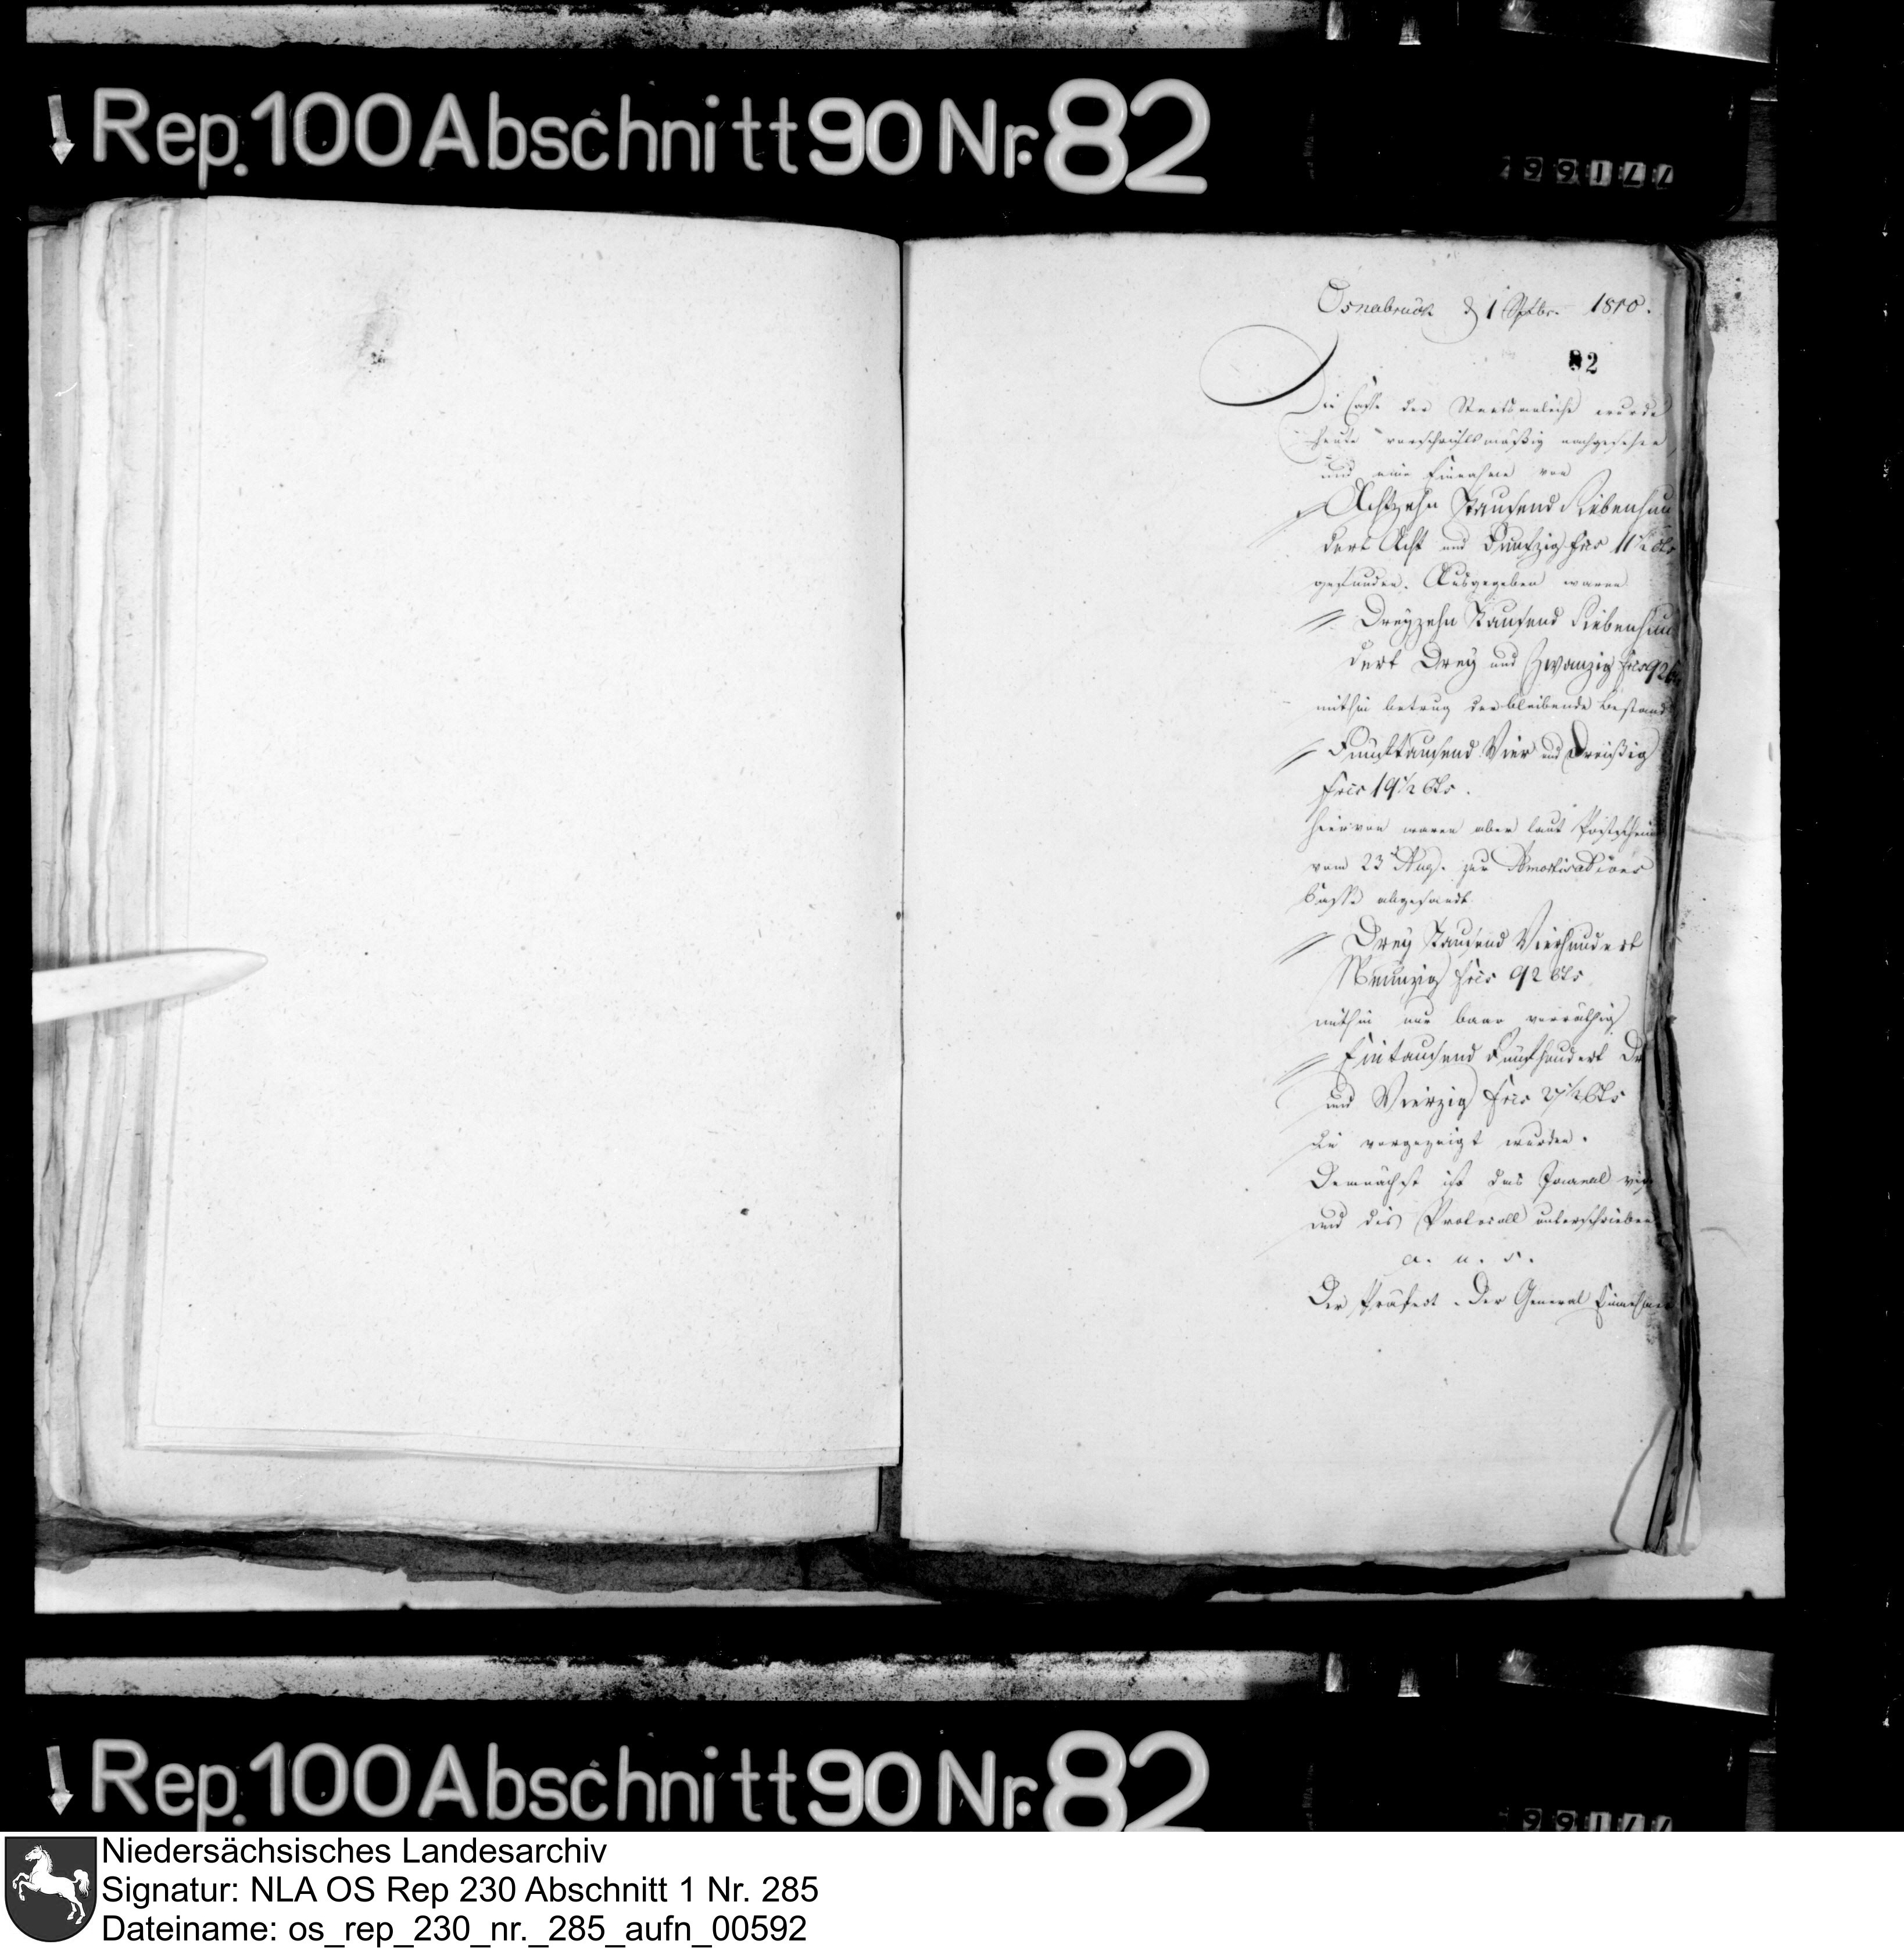 Rep. 100 Abschnitt 90 Nr. 82
Osnabrück d 1 Sptbr. 1810.
82
Die Casse der Staatsanleihe wurde
heute vorschriftsmäßig nachgesehen,
und eine Einnahme von
Achtzehn Tausend Siebenhun
dert Acht und Funfzig frcs 11 1/2 Cts
gefunden. Ausgegeben waren
Dreyzehn Tausend Siebenhun
dert Drey und Zwanzig frcs 92
mithin betrug der bleibende Bestand
Funftausend Vier und Dreißig
frcs 19 1/2 Cts.
hiervon waren aber laut Postschein
vom 23 Aug. zur Amortisations
Casse abgesandt
Drey Tausend Vierhundert
Neunzig frcs 92 Cts
mithin nur baar vorräthig
Eintausend Funfhundert
und Vierzig frcs 27 1/2 Cts
die vorgezeigt wurden.
Demnächst ist das Journal
und dis Protocoll unterschrieben
a. u. s.
Der Präfect. Der General Einnehmer
Rep. 100 Abschnitt 90 Nr. 82
Niedersächsisches Landesarchiv
Signatur: NLA OS Rep 230 Abschnitt 1 Nr. 285
Dateiname: os_rep_230_nr._285_aufn_00592